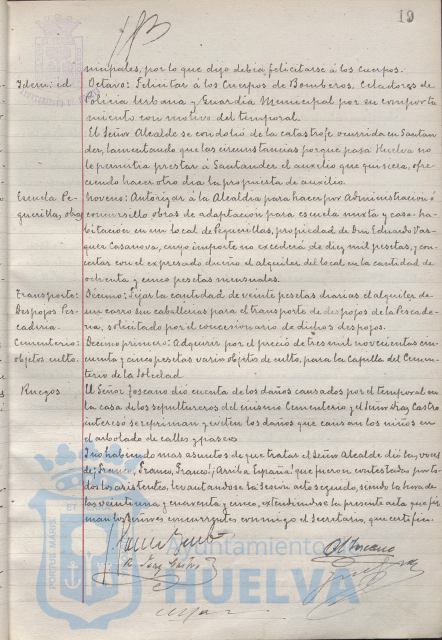 19
nicipales, por lo que dijo debia felicitarse á los Cuerpos.
Idem: id.
Octavo: Felicitar á los Cuerpos de Bomberos, Celadores de
Policia Urbana y Guardia Municipal por su comporta
miento con motivo del temporal.
El Señor Alcalde se condolió de la catastrofe ocurrida en Santan
der, lamentando que las circunstancias porque pasa Huelva no
le permitia prestar á Santander el auxilio que quisiera, ofre
ciendo hacer otro dia la propuesta de auxilio.
Escuela Pe-
guerillas, obras
Noveno: Autorizar á la Alcaldia para hacer por Administracion ó
concursillo obras de adaptacion para escuela mixta y casa-ha-
bitacion en un local de Peguerillas, propiedad de Don Eduardo Vaz-
quez Casanova, cuyo importe no excederá de diez mil pesetas, y con-
certar con el expresado dueño el alquiler del local en la cantidad de
ochenta y cinco pesetas mensuales.
Transporte:
Despojos Pes-
caderia.
Décimo: Fijar la cantidad de veinte pesetas diarias el alquiler de
un carro sin caballerias para el transporte de despojos de la Pescade-
ria, solicitado por el concesionario de dichos despojos.
Cementerio:
objetos culto.
Décimo primero: Adquirir por el precio de tres mil novecientas cin-
cuenta y cinco pesetas varios objetos de culto, para la Capilla del Cemen-
terio de la Soledad.
Ruegos
El Señor Toscano dió cuenta de los daños causados por el temporal en
la casa de los sepultureros del mismo Cementerio y el Señor Fray Castro
interesó se repriman y eviten los daños que causan los niños en
el arbolado de calles y paseos.
Y no habiendo mas asuntos de que tratar el Señor Alcalde dió las voces
de; Franco, Franco, Franco; ¡Arriba España! que fueron contestadas por to-
dos los asistentes, levantandose la sesion acto seguido, siendo la hora de
las veintiuna y cuarenta y cinco, extendiendose la presente acta que fir-
man los señores concurrentes conmigo el Secretario, que certifico.
Ayuntamiento de
HUELVA
PORTUS MARIS